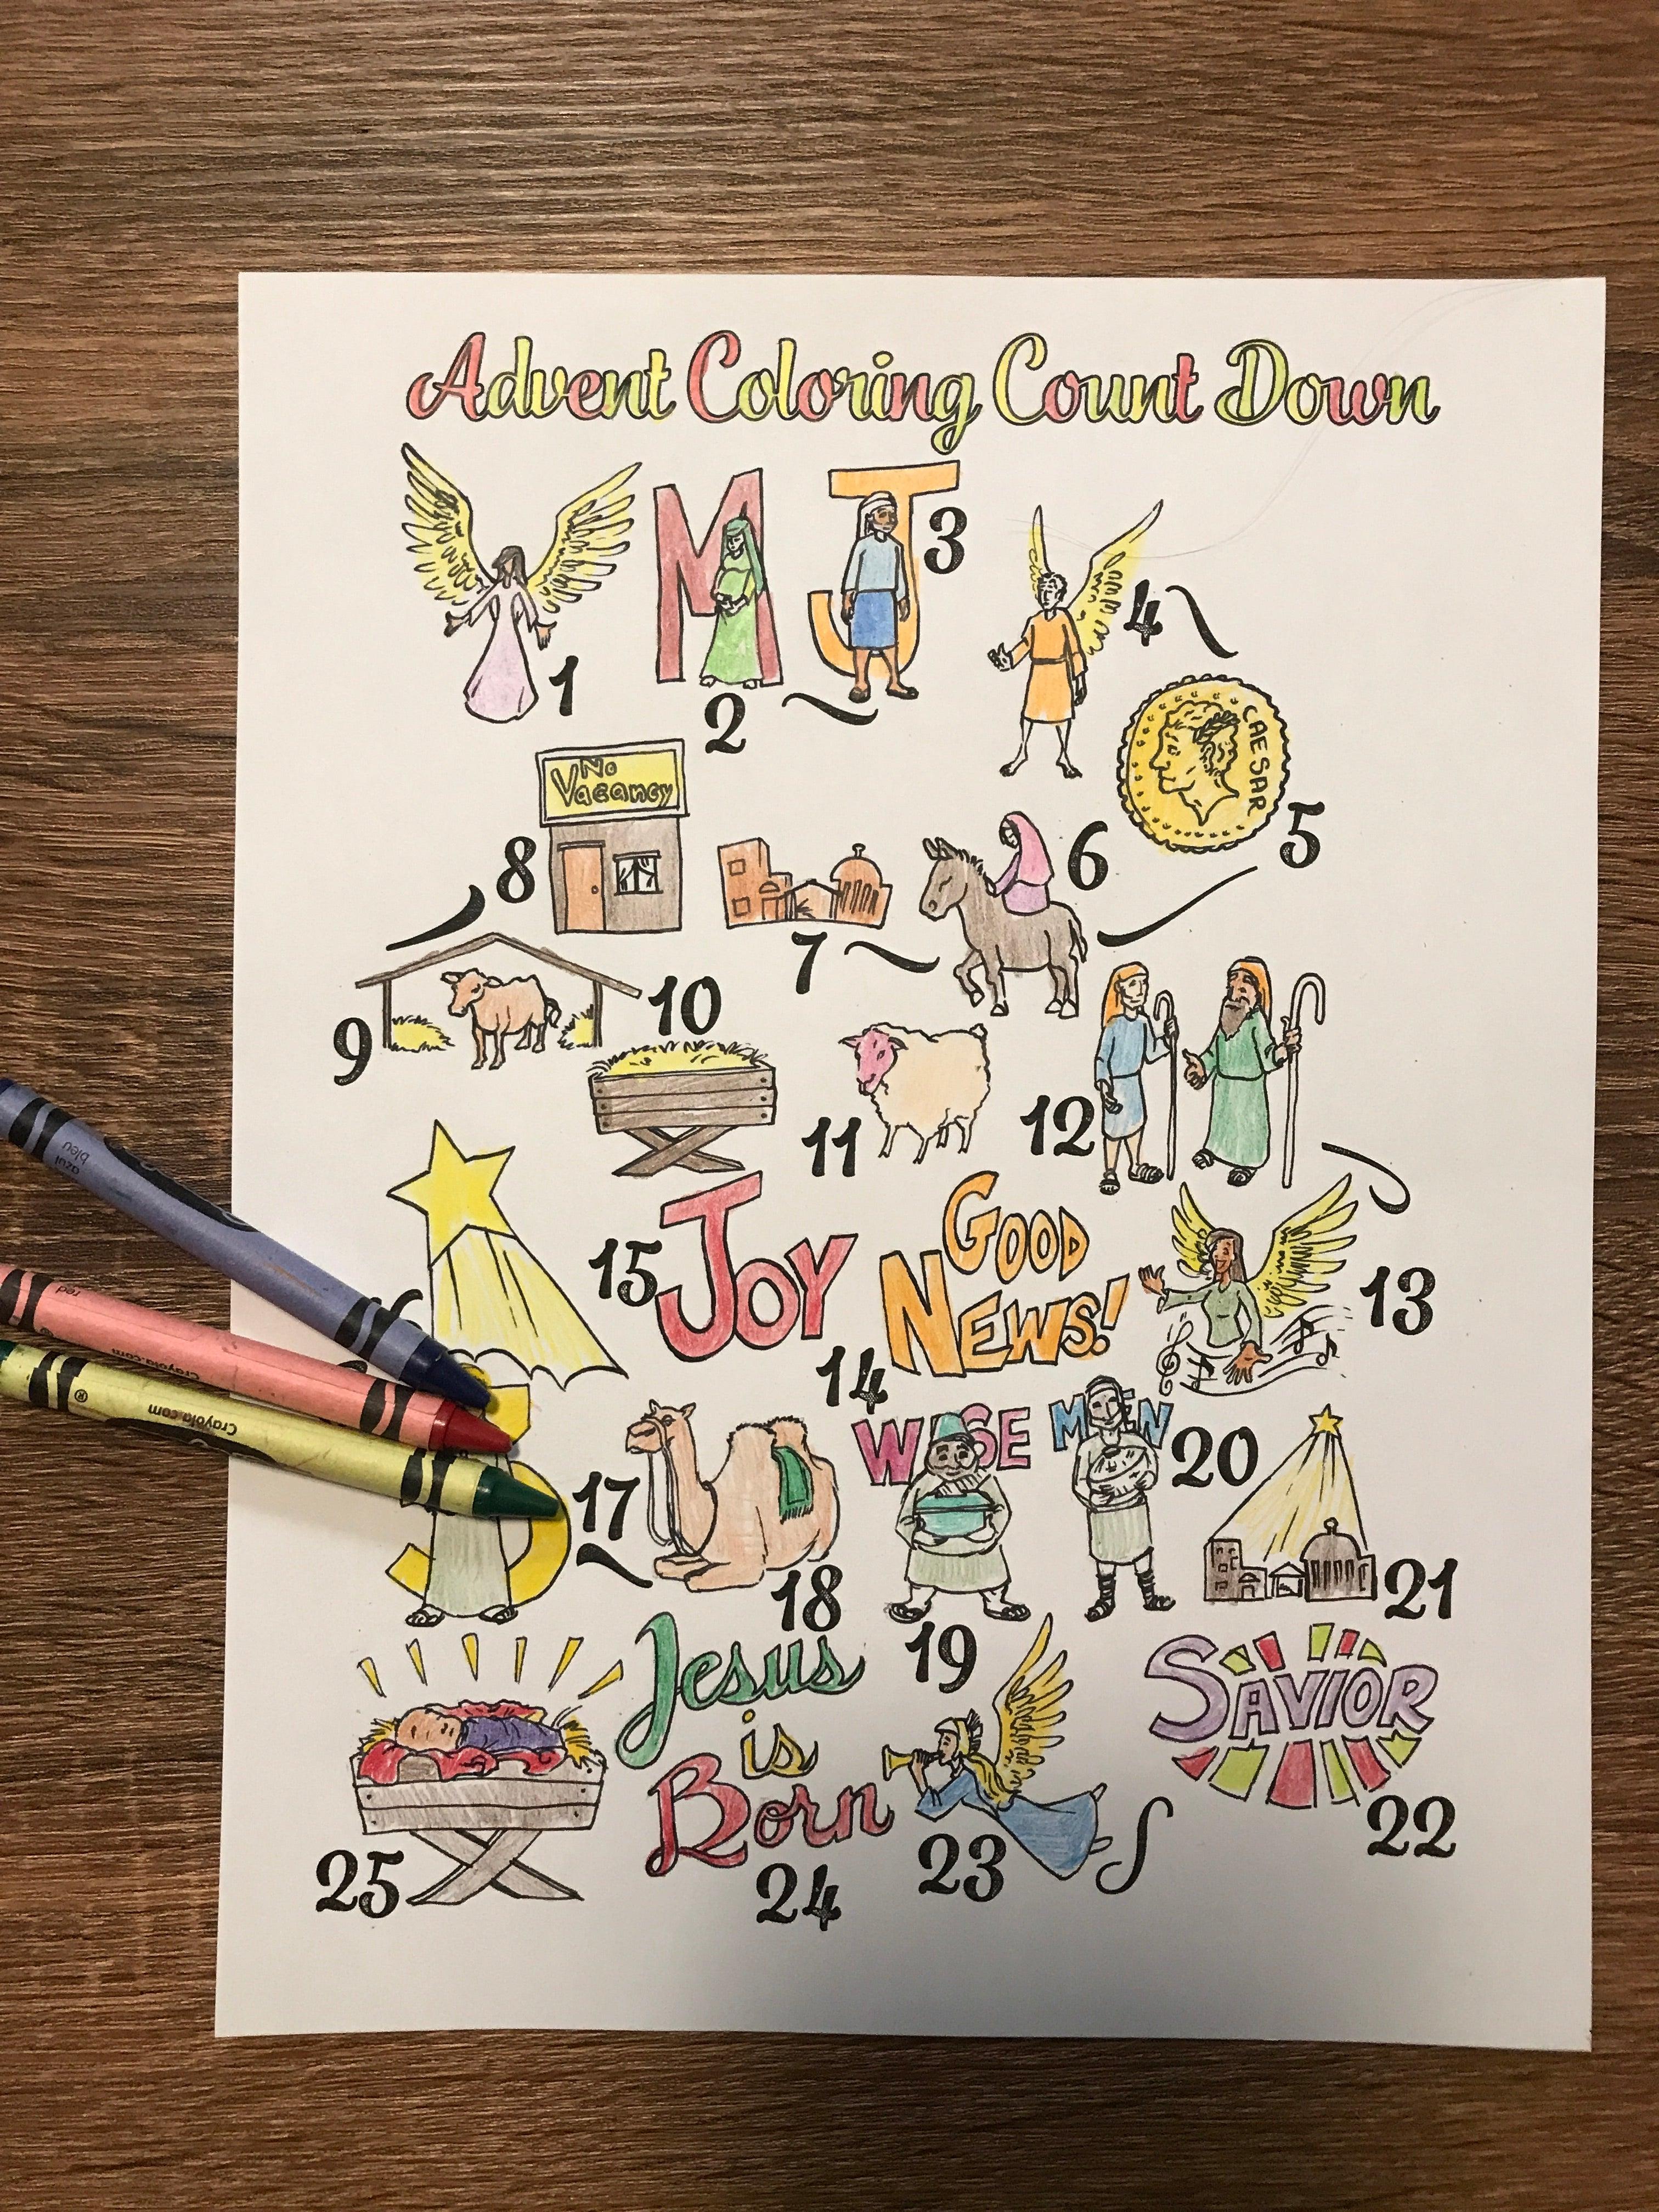 Advent Coloring Count Down
M
J
3
4
1
2
CAESAR
5
No
Vacancy
8
6
7
9
10
11
12
15
JOY
GOOD
NEWS!
14
13
16
17
18
WISE MEN
20
19
21
Jesus
is
Born
24
23
SAVIOR
22
25
azul
bleu
red
Crayola.com
Crayola.com